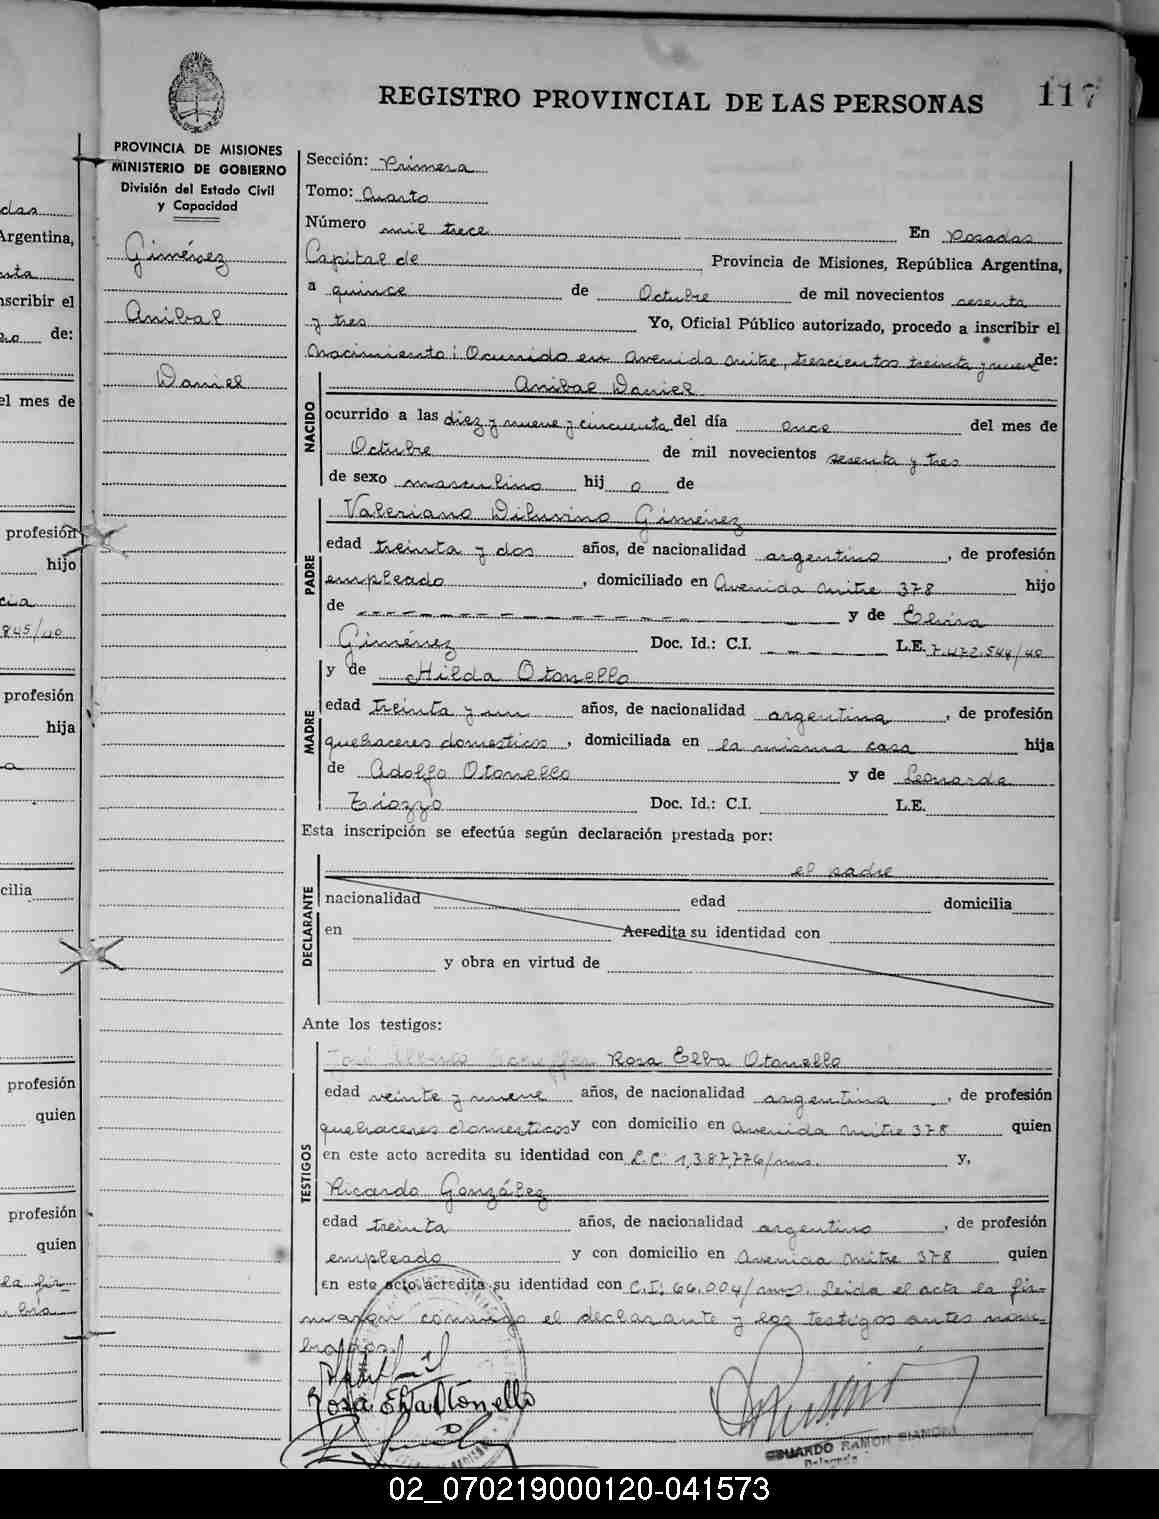 REGISTRO PROVINCIAL DE LAS PERSONAS
117
PROVINCIA DE MISIONES
MINISTERIO DE GOBIERNO
División del Estado Civil
y Capacidad
Giménez
Anibal
Daniel
Sección: Primera
Tomo: Cuarto
Número mil trece En Posadas
Capital de Provincia de Misiones, República Argentina,
a quince de Octubre de mil novecientos sesenta
y tres Yo, Oficial Público autorizado, procedo a inscribir el
Nacimiento: Ocurrido en Avenida Mitre, trescientos treinta y nueve de:
NACIDO
Anibal Daniel
ocurrido a las diez y nueve y cincuenta del día once del mes de
Octubre de mil novecientos sesenta y tres
de sexo masculino hij o de
PADRE
Valeriano Diluvino Giménez
edad treinta y dos años, de nacionalidad argentino, de profesión
empleado, domiciliado en Avenida Mitre 378 hijo
de y de Elvira
Giménez Doc. Id.: C.I. L.E. 7.472.544/40
MADRE
y de Hilda Otonello
edad treinta y un años, de nacionalidad argentina, de profesión
quehaceres domesticos, domiciliada en la misma casa hija
de Adolfo Otonello y de Leonarda
Tiozzo Doc. Id.: C.I. L.E.
Esta inscripción se efectúa según declaración prestada por:
DECLARANTE
el padre
nacionalidad edad domicilia
en Acredita su identidad con
y obra en virtud de
Ante los testigos:
TESTIGOS
José Alberto Rosa Elba Otonello
edad veinte y nueve años, de nacionalidad argentina, de profesión
quehaceres domesticos y con domicilio en Avenida Mitre 378 quien
en este acto acredita su identidad con L.C. 1,387,776/mns. y,
Ricardo González
edad treinta años, de nacionalidad argentino, de profesión
empleado y con domicilio en Avenida Mitre 378 quien
en este acto acredita su identidad con C.I. 66.004/mns. Leida el acta la fir-
maron conmigo el declarante y los testigos antes nom-
brados.
Rosa Elba Otonello
EDUARDO RAMON
Delegado
das
Argentina,
nscribir el
de:
el mes de
profesión
hijo
cia
845/40
profesión
hija
cilia
profesión
quien
profesión
quien
la fir-
02_070219000120-041573